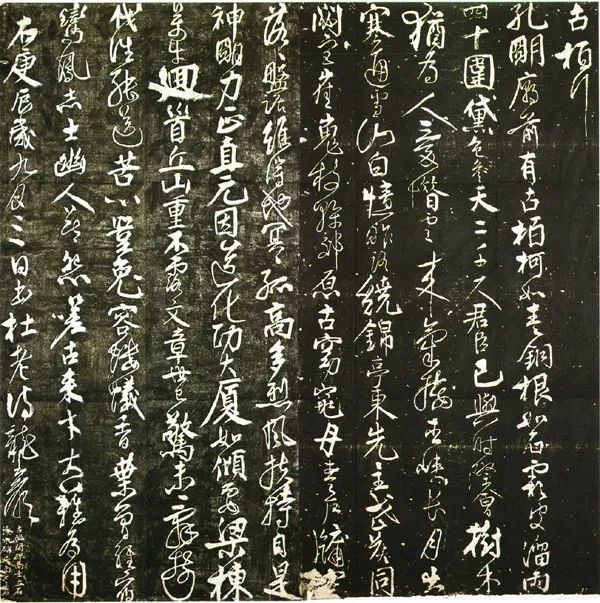 古柏行
孔明廟前有古柏柯如青銅根如石霜皮溜雨
四十圍黛色參天二千尺君臣已與時際會樹木
猶為人愛惜雲來氣接巫峽長月出
寒通雪山白憶昨路繞錦亭東先主武侯同
閟宮崔嵬枝幹郊原古窈窕丹青户牖空
落落盤踞雖得地冥冥孤高多烈風扶持自是
神明力正直元因造化功大厦如傾要梁棟
萬牛廻首丘山重不露文章世已驚未辭剪
伐誰能送苦心豈免容螻蟻香葉曾經宿
鸞鳳志士幽人莫怨嗟古來材大難為用
右庚辰歲九月三日書杜老詩龍巖